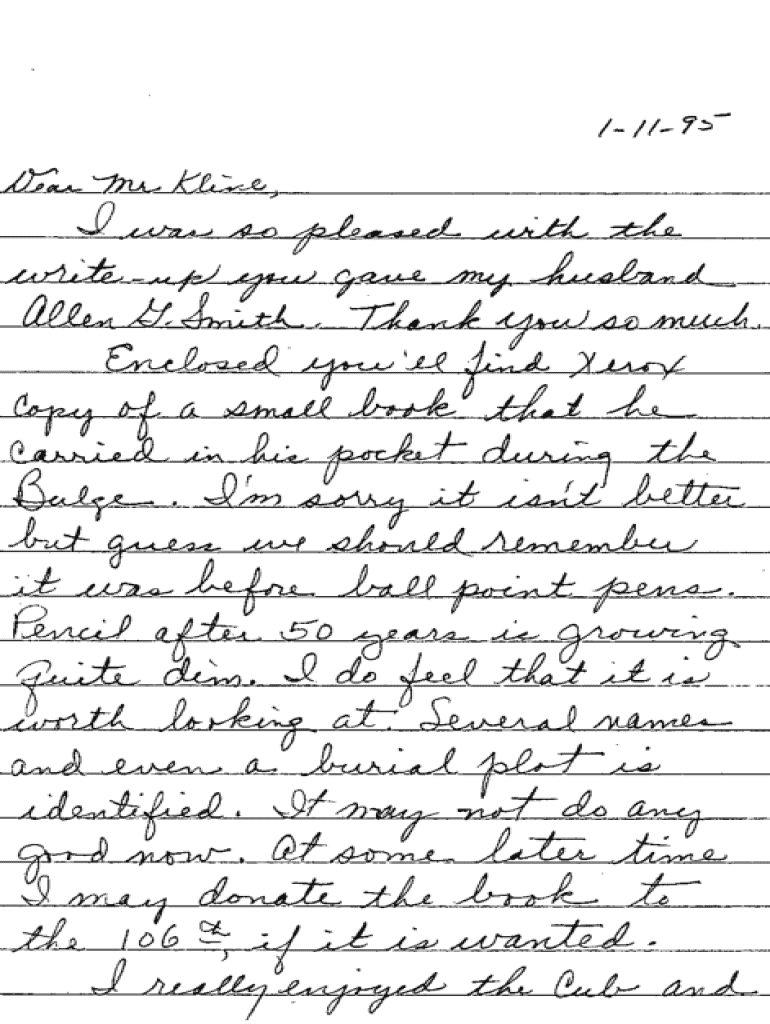 1-11-95
Dear Mr Kline,
I was so pleased with the
write-up you gave my husband
Allen G. Smith. Thank you so much.
Enclosed you'll find Xerox
copy of a small book that he
carried in his pocket during the
Bulge. I'm sorry it isn't better
but guess we should remember
it was before ball point pens.
Pencil after 50 years is growing
quite dim. I do feel that it is
worth looking at. Several names
and even a burial plot is
identified. It may not do any
good now. At some later time
I may donate the book to
the 106th, if it is wanted.
I really enjoyed the Cub and